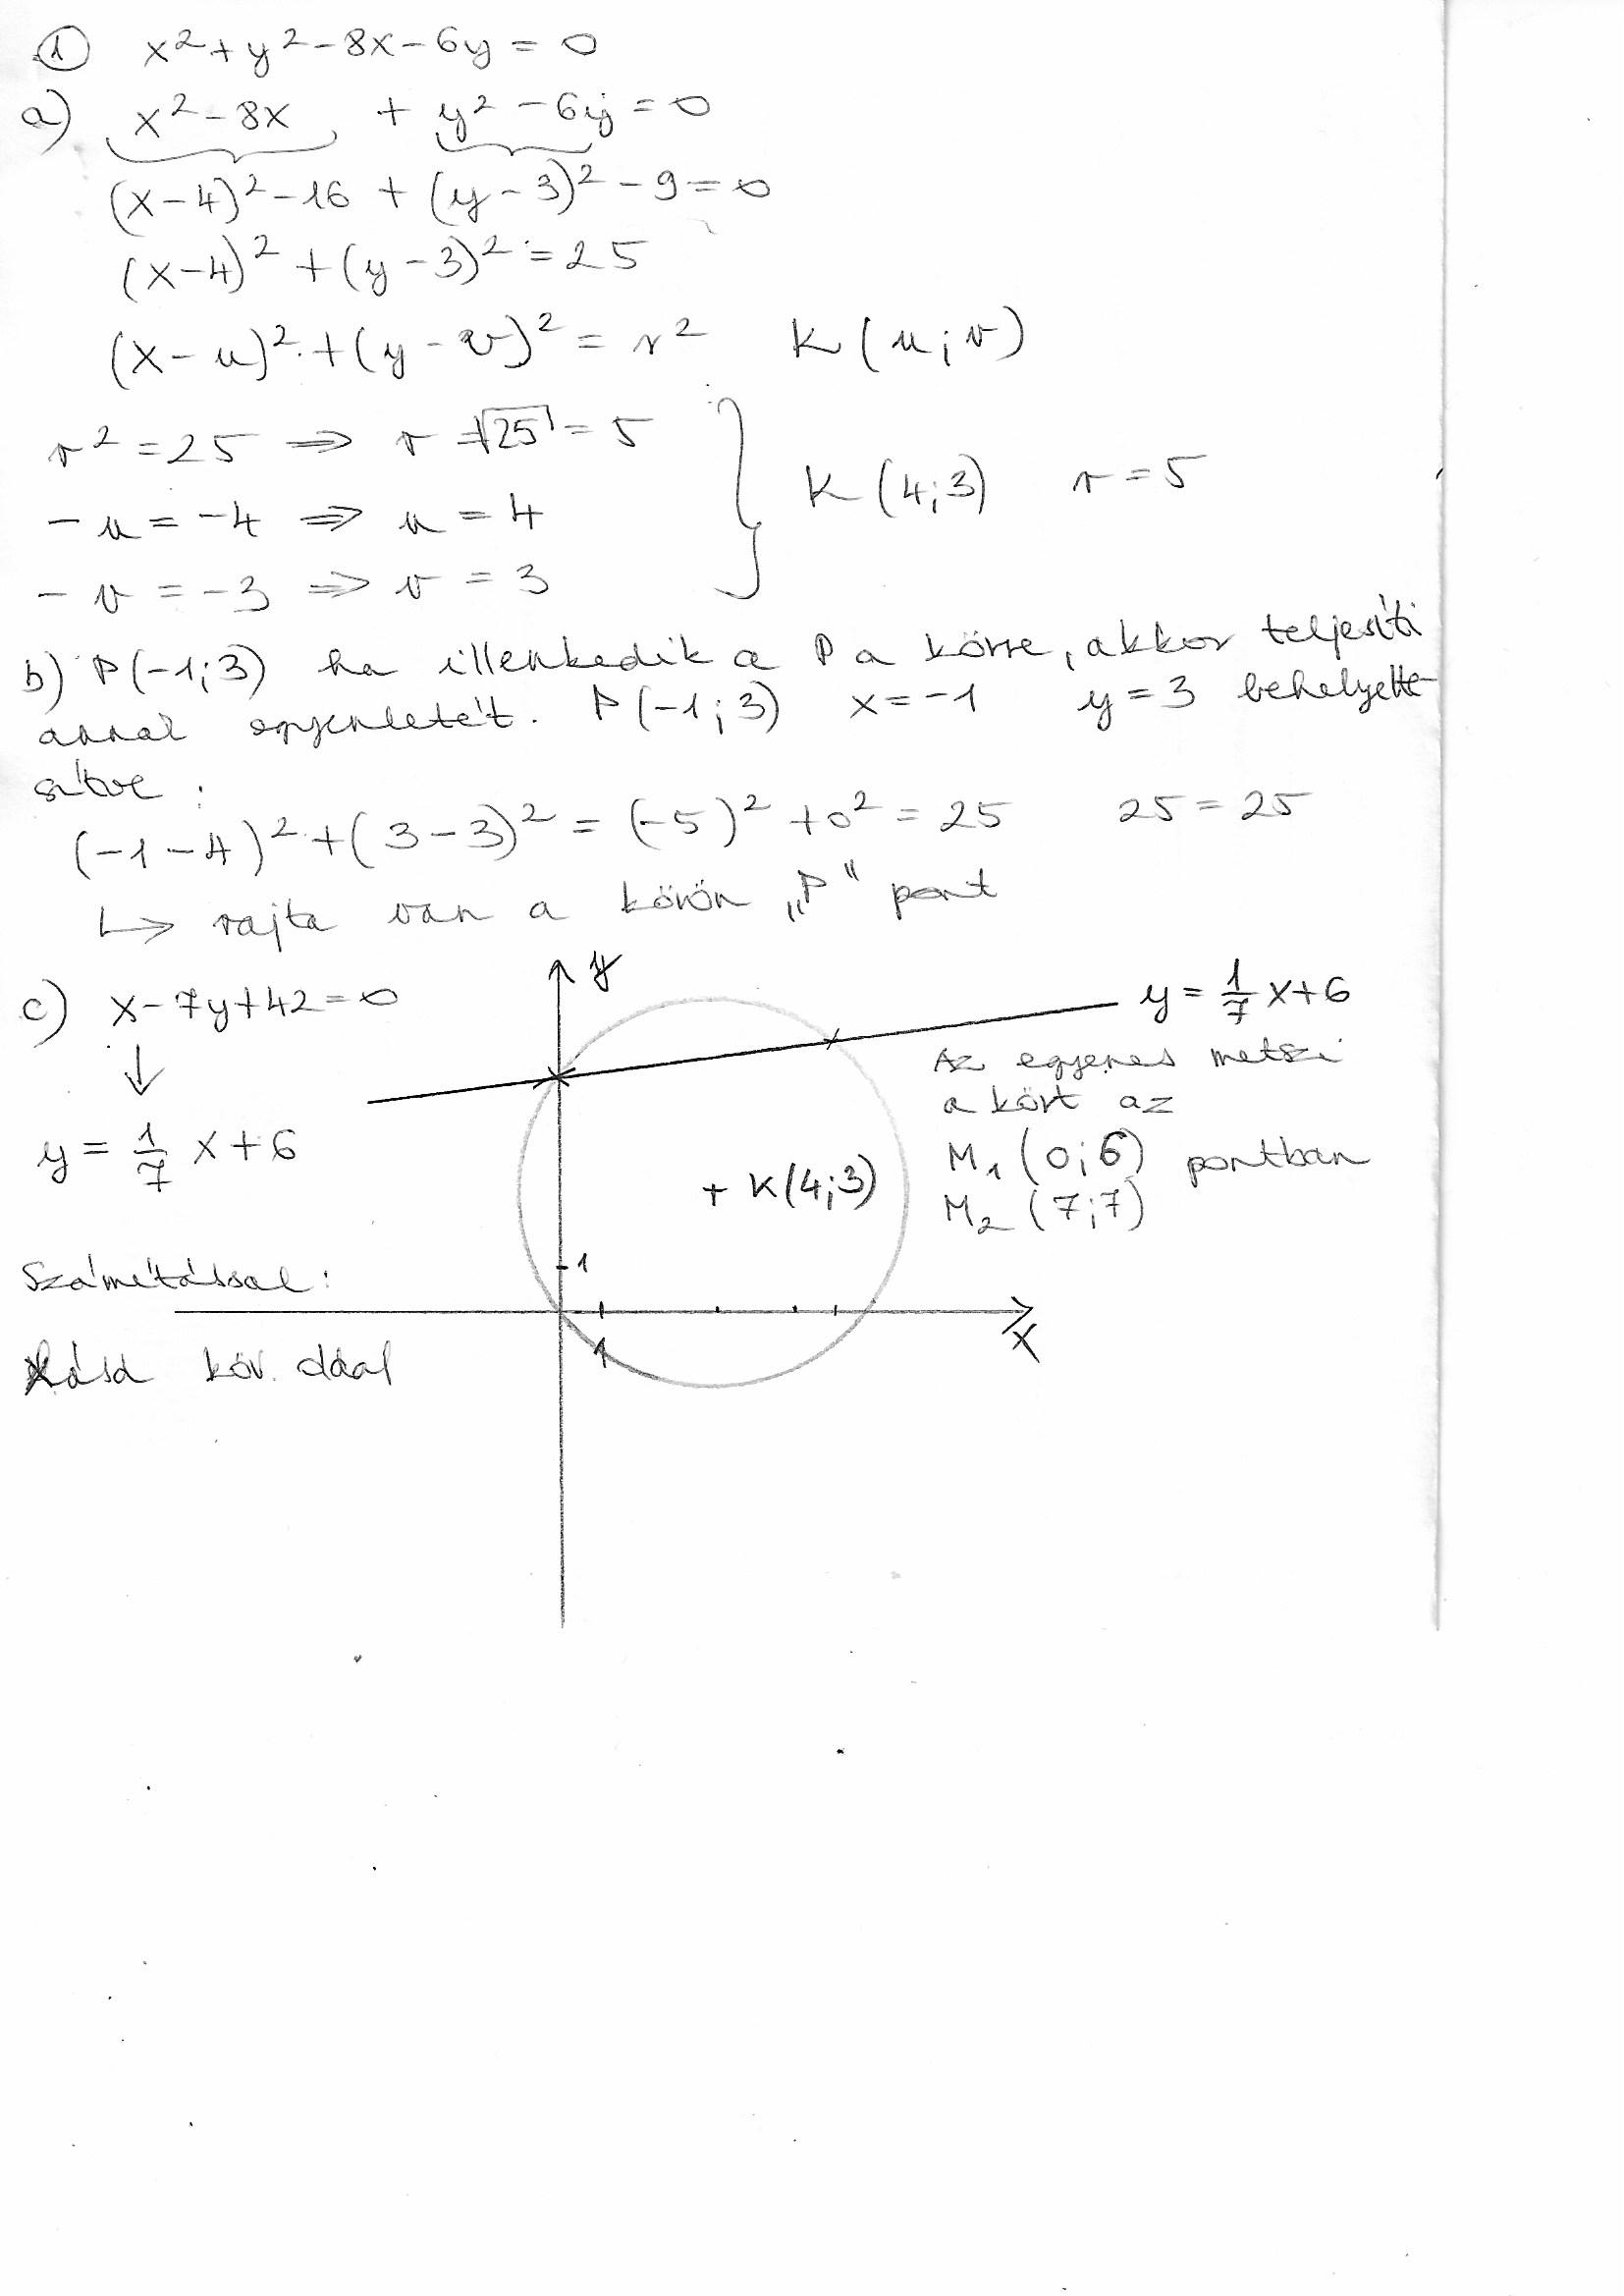 ① x² + y² - 8x - 6y = 0
a) x² - 8x + y² - 6y = 0
(x-4)² - 16 + (y-3)² - 9 = 0
(x-4)² + (y-3)² = 25
(x-u)² + (y-v)² = r² K(u;v)
r² = 25 ⇒ r = √25 = 5
- u = -4 ⇒ u = 4
K(4;3) r = 5
- v = -3 ⇒ v = 3
b) P(-1;3) ha illenkedik a P a körre, akkor teljesíti
annak egyenletét. P(-1;3) x = -1 y = 3 behelyette-
sítve:
(-1-4)² + (3-3)² = (-5)² + 0² = 25 25 = 25
↳ rajta van a körön „P" pont
c) x - 7y + 42 = 0
↓
y = 1/7 x + 6
y
y = 1/7 x + 6
Az egyenes metszi
a kört az
M₁(0;6) pontban
M₂(7;7)
+ K(4;3)
1
1
x
Számítással:
Lásd köv. oldal